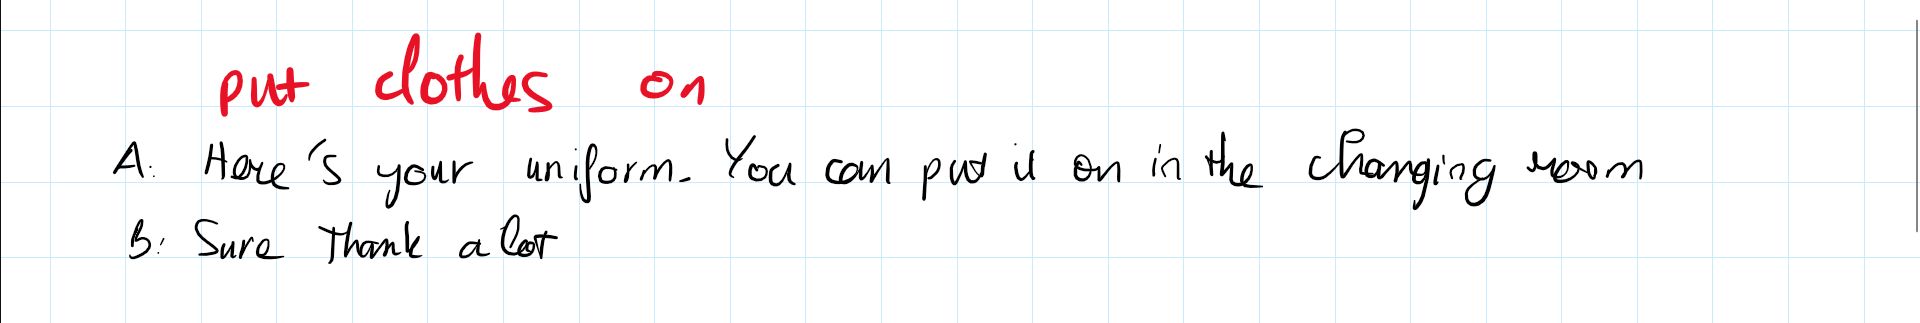 put clothes on
A: Here's your uniform. You can put it on in the changing room
B: Sure Thank a lot